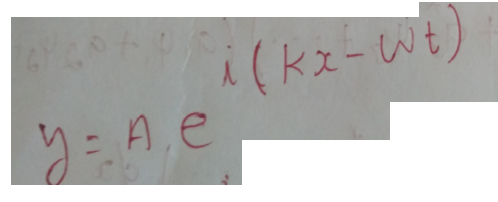 y = A e^{i(kx - wt)}